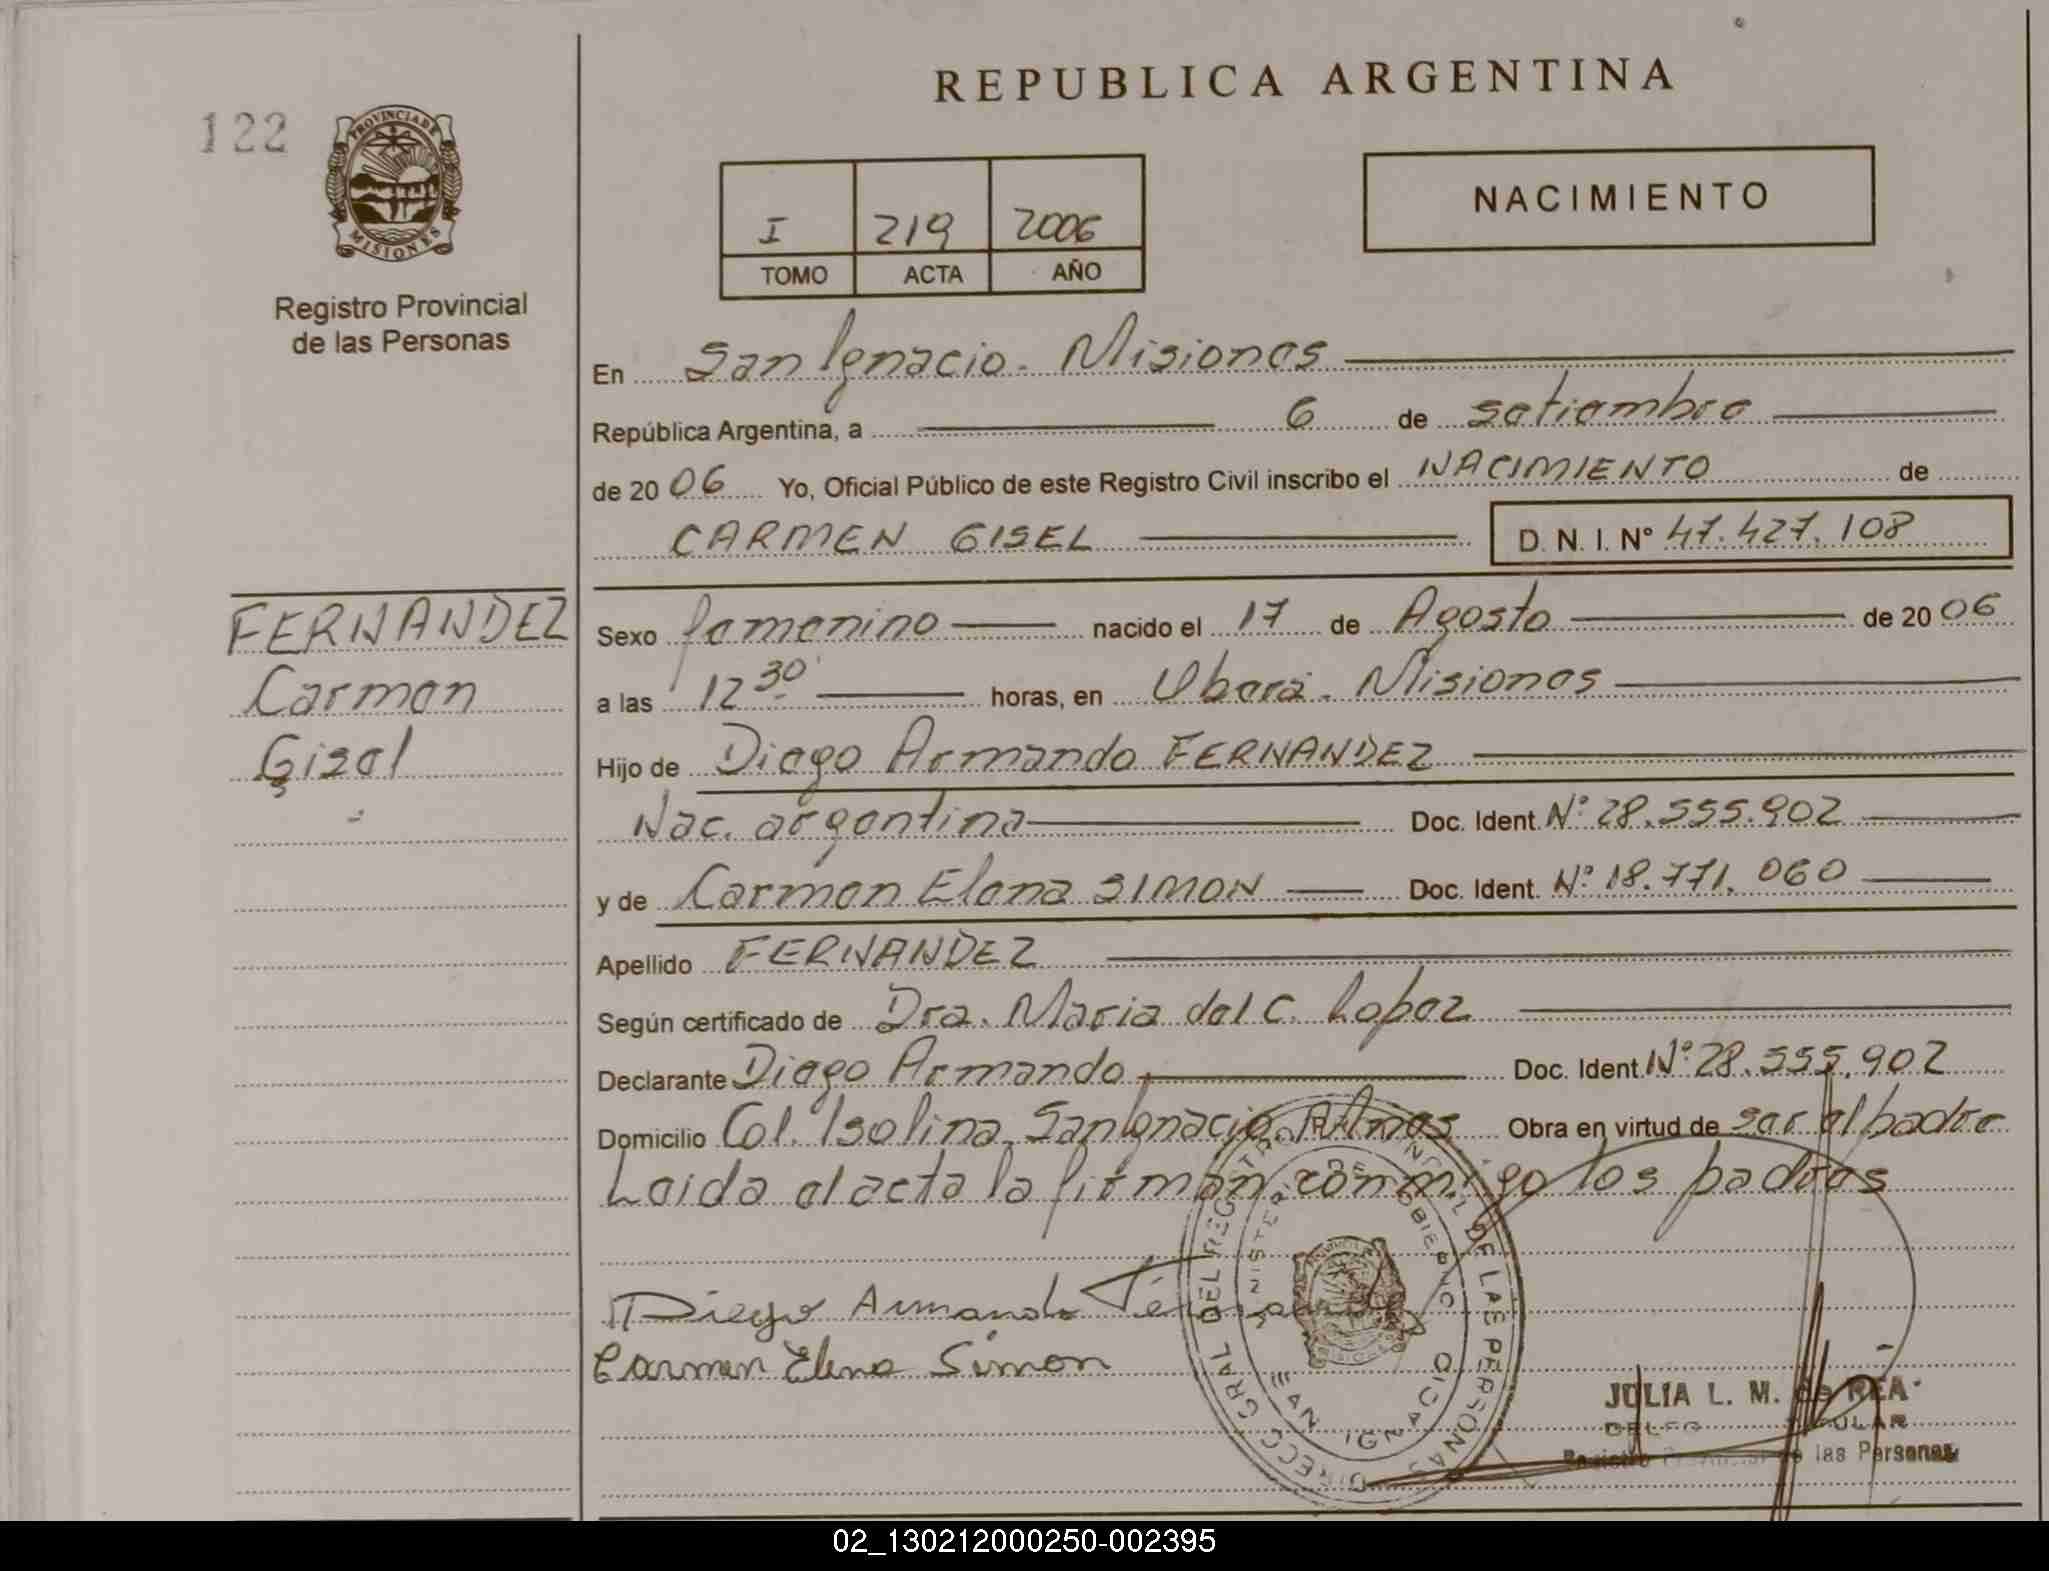 REPUBLICA ARGENTINA
122
PROVINCIA DE
MISIONES
Registro Provincial
de las Personas
I 219 2006
TOMO ACTA AÑO
NACIMIENTO
En San Ignacio - Misiones
República Argentina, a 6 de setiembre
de 2006 Yo, Oficial Público de este Registro Civil inscribo el NACIMIENTO de
CARMEN GISEL D. N. I. Nº 47.427.108
FERNANDEZ
Carmen
Gisel
Sexo femenino nacido el 17 de Agosto de 2006
a las 12 30 horas, en Oberá - Misiones
Hijo de Diego Armando FERNANDEZ
Nac. argentina Doc. Ident. Nº 28.555.902
y de Carmen Elena SIMON Doc. Ident. Nº 18.771.060
Apellido FERNANDEZ
Según certificado de Dra. Maria del C. Lopez
Declarante Diego Armando Doc. Ident. Nº 28.555.902
Domicilio Col. Isolina San Ignacio Obra en virtud de ser el padre
Leida el acta la firman conmigo los padres
Diego Armando
Carmen Elena Simon
DIRECC GRAL DEL REGISTRO DE LAS PERSONAS
MINISTERIO DE GOBIERNO
SAN IGNACIO
JULIA L. M. de REA
Registro Provincial de las Personas
02_130212000250-002395